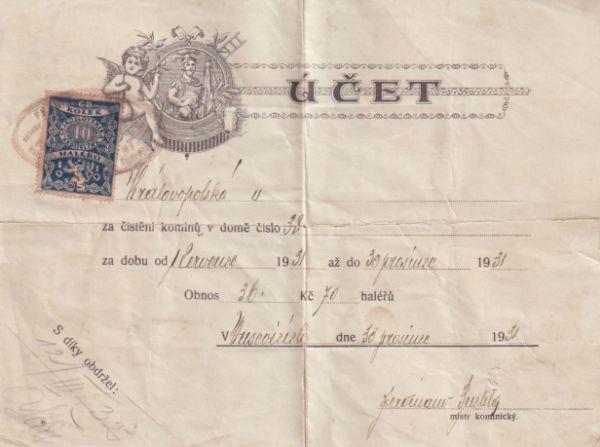 ÚČET
KOLEK
10
HALÉŘŮ
Královopolská 11
za čistění kominů v domě číslo 38
za dobu od 1 Července 1931 až do 30 prosince 1931
Obnos 36. Kč 70 haléřů
V dne 30 prosince 1931
S díky obdržel:
mistr kominický.